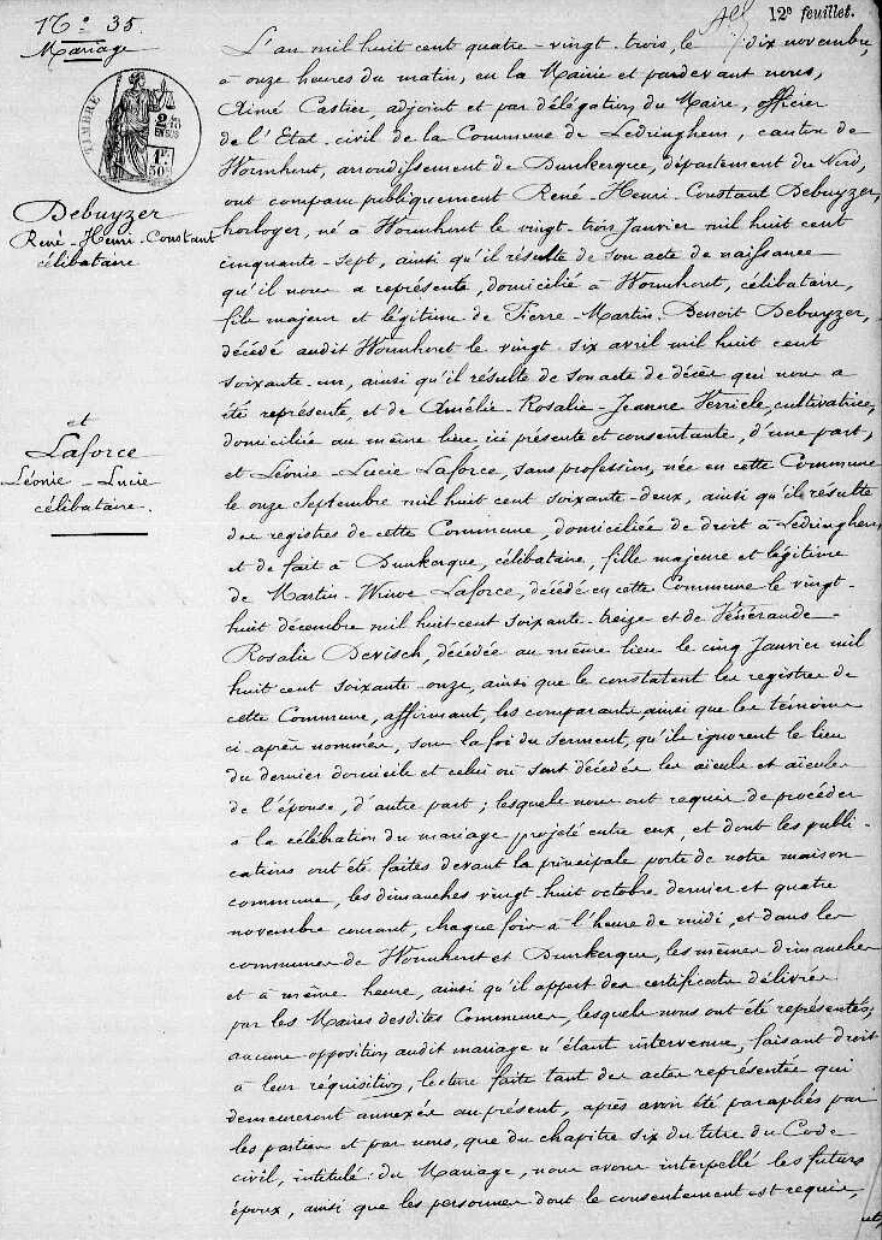 12e feuillet.
No 35.
Mariage
TIMBRE
2/10
EN SUS
1F
50c
Debuyzer
René-Henri-Constant
célibataire
et
Laforce
Léonie-Lucie
célibataire.
L'an mil huit cent quatre-vingt-trois, le dix novembre,
à onze heures du matin, en la Mairie et pardevant nous,
Aimé Castier, adjoint et par délégation du Maire, officier
de l'Etat-civil de la Commune de Ledringhem, canton de
Wormhout, arrondissement de Dunkerque, département du Nord,
ont comparu publiquement René-Henri-Constant Debuyzer,
horloger, né à Wormhout le vingt-trois Janvier mil huit cent
cinquante-sept, ainsi qu'il résulte de son acte de naissance
qu'il nous a représenté, domicilié à Wormhout, célibataire,
fils majeur et légitime de Pierre-Martin-Benoit Debuyzer,
décédé audit Wormhout le vingt-six avril mil huit cent
soixante-un, ainsi qu'il résulte de son acte de décès qui nous a
été représenté, et de Amélie-Rosalie-Jeanne Verriele, cultivatrice,
domiciliée au même lieu, ici présente et consentante, d'une part,
et Léonie-Lucie Laforce, sans profession, née en cette Commune
le onze Septembre mil huit cent soixante-deux, ainsi qu'il résulte
des registres de cette Commune, domiciliée de droit à Ledringhem,
et de fait à Dunkerque, célibataire, fille majeure et légitime
de Martin-Winoc Laforce, décédé en cette Commune le vingt-
huit décembre mil huit cent soixante-treize et de Vénérande-
Rosalie Devisch, décédée au même lieu le cinq Janvier mil
huit cent soixante-onze, ainsi que le constatent les registres de
cette Commune, affirmant, les comparants, ainsi que les témoins
ci après nommés, sous la foi du serment, qu'ils ignorent le lieu
du dernier domicile et celui où sont décédés les aïeuls et aïeules
de l'épouse, d'autre part; lesquels nous ont requis de procéder
à la célébration du mariage projeté entre eux, et dont les publi-
cations ont été faites devant la principale porte de notre maison
commune, les dimanches vingt-huit octobre dernier et quatre
novembre courant, chaque fois à l'heure de midi, et dans les
communes de Wormhout et Dunkerque, les mêmes dimanches
et à même heure, ainsi qu'il appert des certificats délivrés
par les Maires desdites Communes, lesquels nous ont été représentés;
aucune opposition audit mariage n'étant intervenue, faisant droit
à leur réquisition, lecture faite tant des actes représentés qui
demeureront annexés au présent, après avoir été paraphés par
les parties et par nous, que du chapitre six du titre du Code
civil, intitulé: du Mariage, nous avons interpellé les futurs
époux, ainsi que les personnes dont le consentement est requis,